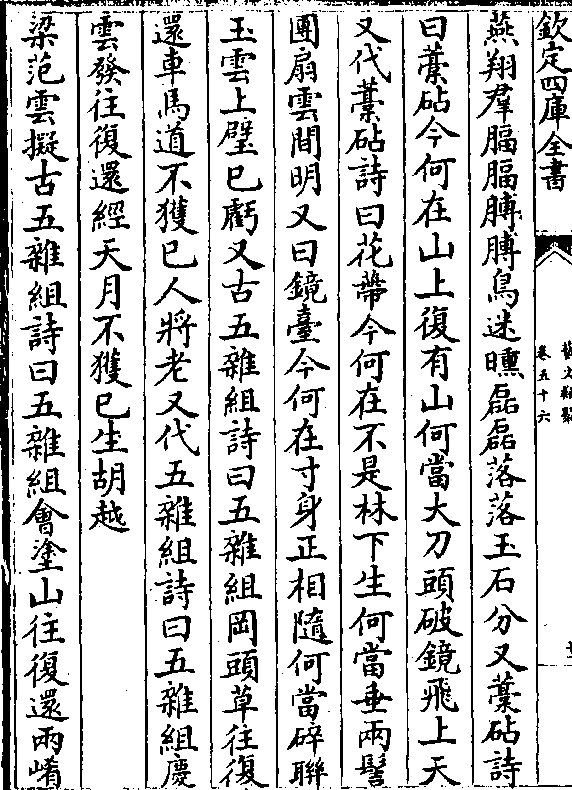 欽定四庫全書
卷五十六
燕翔羣膈膈膊膊鳥迷曛磊磊落落玉石分又藁砧詩
曰藁砧今何在山上復有山何當大刀頭破鏡飛上天
又代藁砧詩曰花蔕今何在不是林下生何當垂兩髻
團扇雲間明又曰鏡臺今何在寸身正相隨何當碎聯
玉雲上璧已虧又古五雜組詩曰五雜組岡頭草往復
還車馬道不獲已人將老又代五雜組詩曰五雜組慶
雲發往復還經天月不獲已生胡越
梁范雲擬古五雜組詩曰五雜組會塗山往復還兩崤